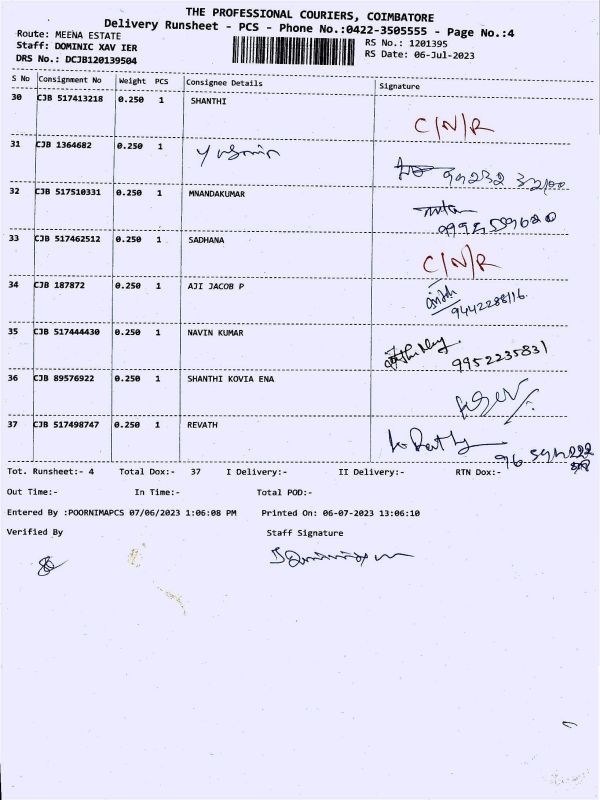 THE PROFESSIONAL COURIERS, COIMBATORE
Delivery Runsheet - PCS - Phone No.:0422-3505555 - Page No.:4
Route: MEENA ESTATE
RS No.: 1201395
Staff: DOMINIC XAV IER
RS Date: 06-Jul-2023
DRS No.: DCJB120139504
S No Consignment No Weight PCS Consignee Details Signature
30 CJB 517413218 0.250 1 SHANTHI
C/N/R
31 CJB 1364682 0.250 1
32 CJB 517510331 0.250 1 MNANDAKUMAR
33 CJB 517462512 0.250 1 SADHANA
C/N/R
34 CJB 187872 0.250 1 AJI JACOB P
9442288116
35 CJB 517444430 0.250 1 NAVIN KUMAR
9952235831
36 CJB 89576922 0.250 1 SHANTHI KOVIA ENA
37 CJB 517498747 0.250 1 REVATH
Tot. Runsheet:- 4 Total Dox:- 37 I Delivery:- II Delivery:- RTN Dox:-
Out Time:- In Time:- Total POD:-
Entered By :POORNIMAPCS 07/06/2023 1:06:08 PM Printed On: 06-07-2023 13:06:10
Verified By Staff Signature